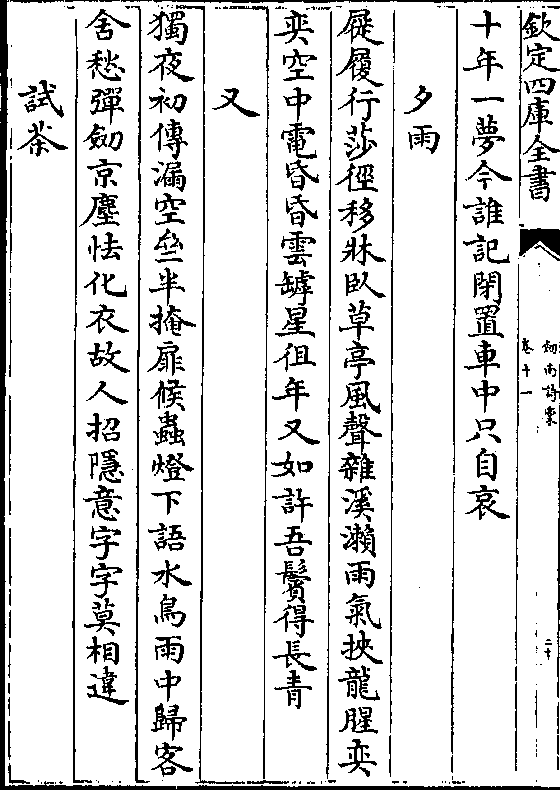 欽定四庫全書
劒南詩槀
卷十一
二十
十年一夢今誰記閉置車中只自哀
夕雨
屐履行莎徑移牀臥草亭風聲雜溪瀨雨氣挾龍腥奕
奕空中電昏昏雲罅星徂年又如許吾鬢得長青
又
獨夜初傳漏空堂半掩扉候蟲燈下語水鳥雨中歸客
舍愁彈劒京塵怯化衣故人招隱意字字莫相違
試茶